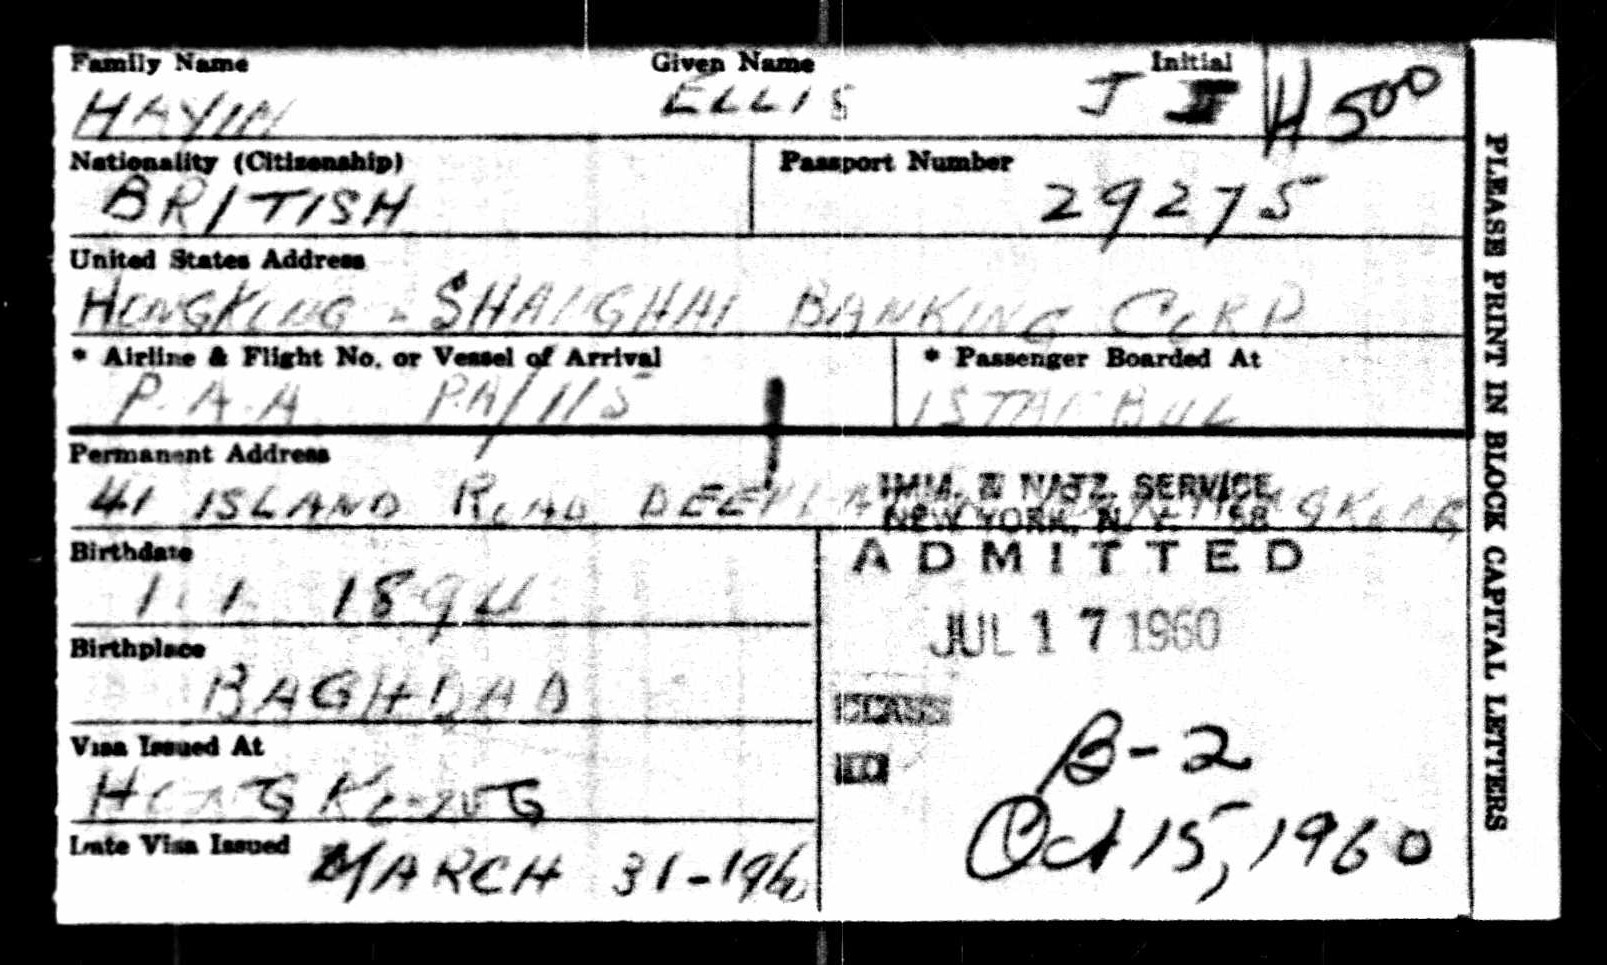 Family Name Given Name Initial
HAYIN ELLIS J H 500
Nationality (Citizenship) Passport Number
BRITISH 29275
United States Address
HONGKONG - SHANGHAI BANKING CORP
* Airline & Flight No. or Vessel of Arrival * Passenger Boarded At
P.A.A PA/115 ISTANBUL
Permanent Address
41 ISLAND ROAD DEEP HONGKONG
IMM. & NATZ. SERVICE
NEW YORK, N. Y. 58
ADMITTED
Birthdate
1. 1. 1894
JUL 17 1960
Birthplace
BAGHDAD
CLASS
B-2
Visa Issued At
HONG KONG
TO
Oct 15, 1960
Date Visa Issued
MARCH 31-1960
PLEASE PRINT IN BLOCK CAPITAL LETTERS